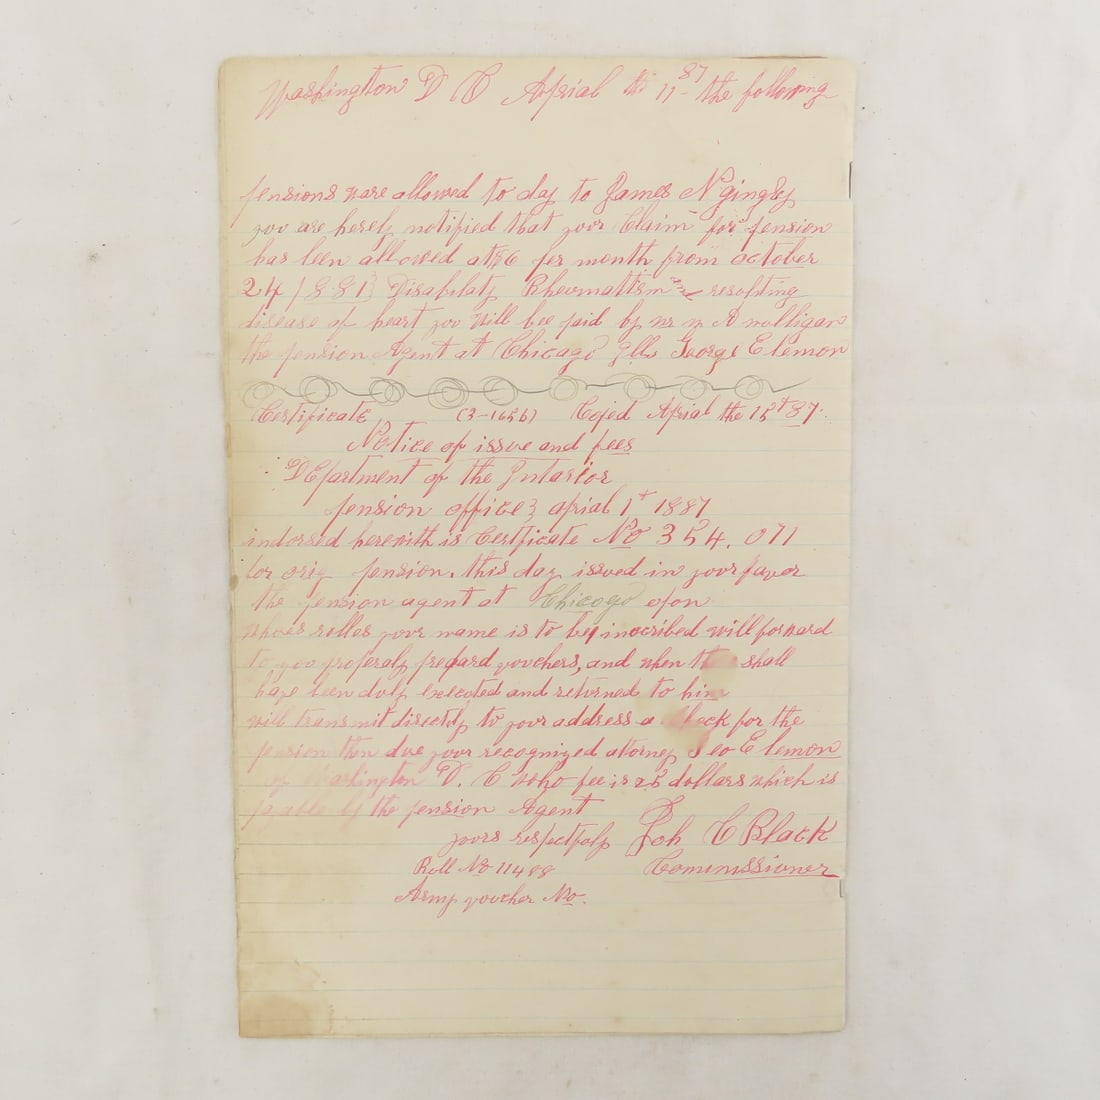 Washington D C Aprial th 11 - 87 the following
pensions ware allowed to day to James N gingry
you are herely notified that your Claim for pension
has been allowed at $6 per month from october
24 / 881} Disability Rheumattism resolting
disease of heart you will bee paid by A mulligan
the pension Agent at Chicago Ills George E lemon
Certificate (3-165b) Copied Aprial the 15th 87.
Notice of issue and fees
DEpartment of the Intarior
pension office} aprial 1st 1887
indorsed herewith is Certficate No 354.071
for orig pension. this day issued in your favor
the pension agent at Chicago opon
whoes rolles your name is to be inocribed will forward
to you properaly prepard vouchers, and when shall
have been duly executed and returned to him
will transmit directly to your address a check for the
pension then due your recognized attorney Geo E lemon
of Washington D. C who fee is 25 dollars which is
payable by the pension Agent
yours respectfuly Joh C Black
Roll No 11488 Commissioner
Army voucher No.